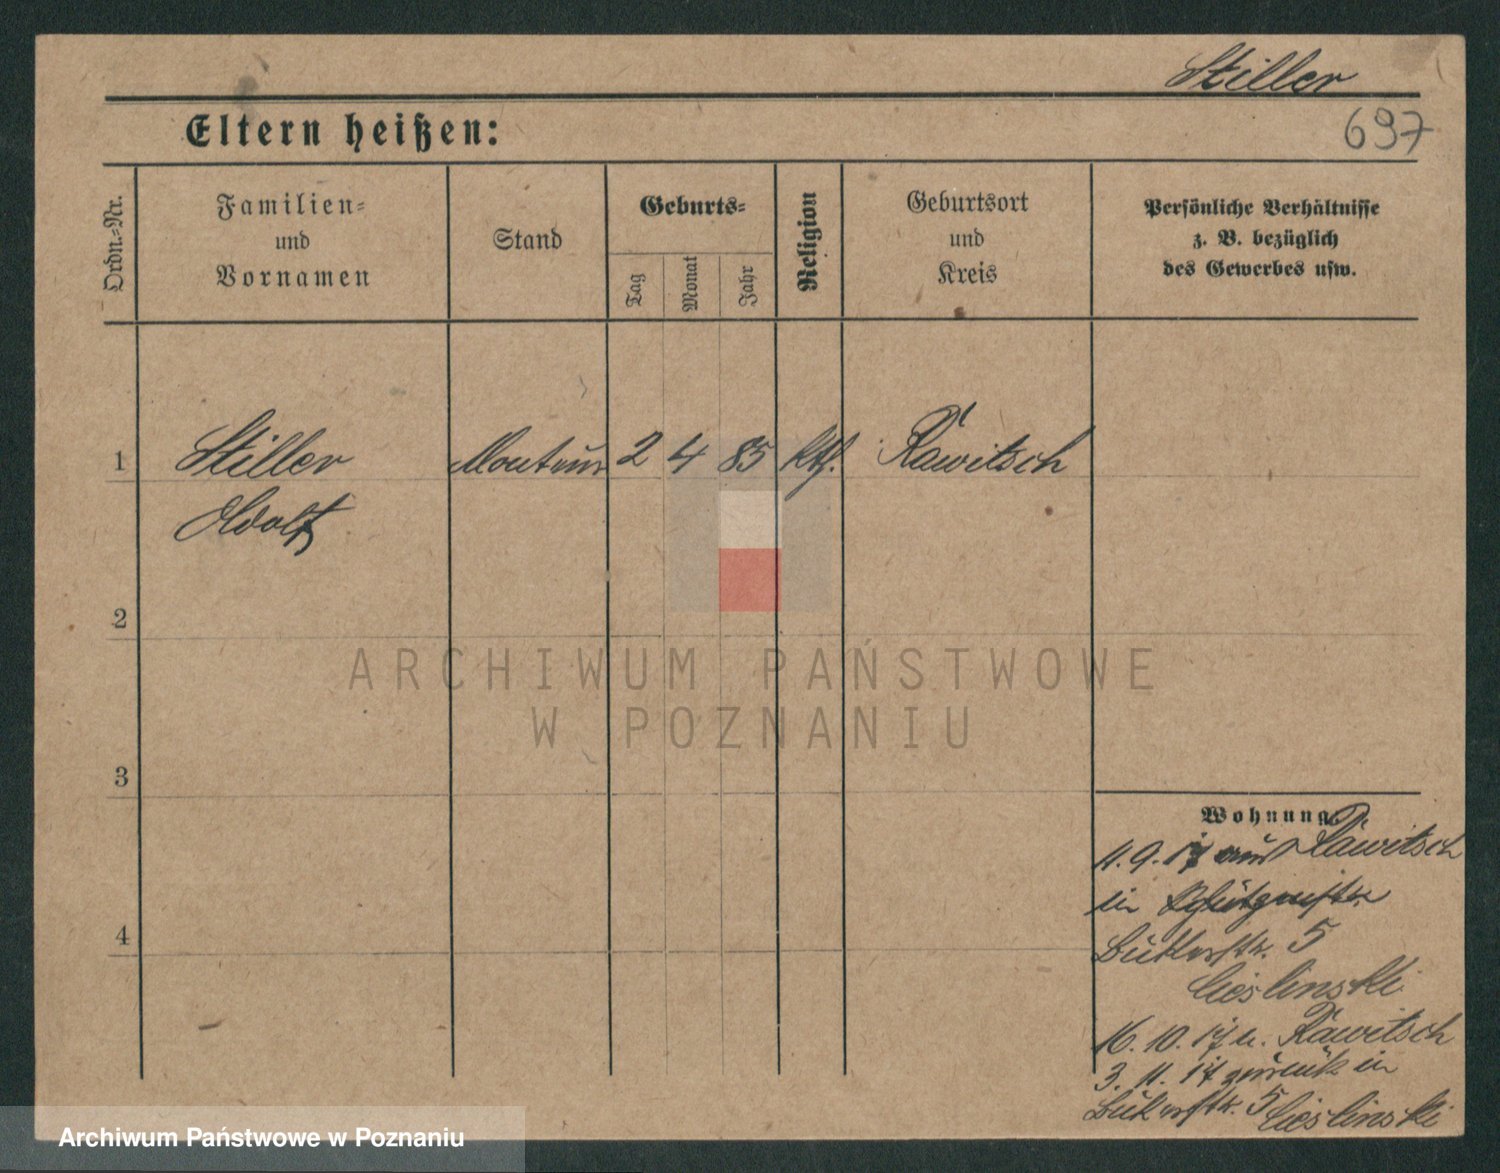 Stiller
697
Eltern heißen:
Ordn.=Nr.
Familien=
und
Vornamen
Stand
Geburts=
Tag
Monat
Jahr
Religion
Geburtsort
und
Kreis
Persönliche Verhältnisse
z. B. bezüglich
des Gewerbes usw.
1 Stiller Monteur 2 4 85 kth. Rawitsch
Adolf
2
ARCHIWUM PAŃSTWOWE
W POZNANIU
3
Wohnung
11. 9. 17 aus Rawitsch
in
5
Cieslinski
16. 10. 17 n. Rawitsch
3. 11. 17 zurück in
5 Cieslinski
4
Archiwum Państwowe w Poznaniu